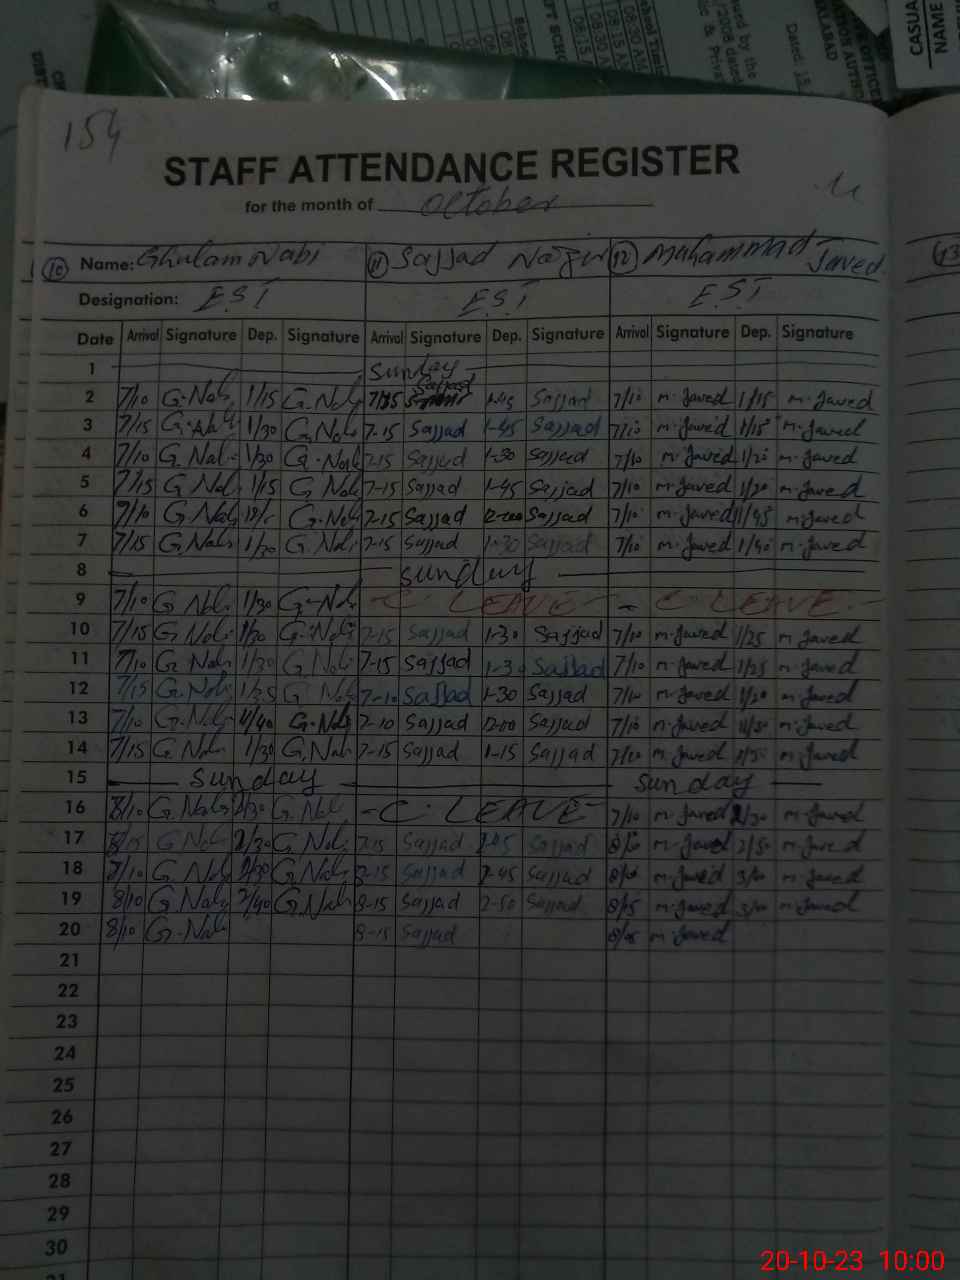 CASUA
NAME
154
STAFF ATTENDANCE REGISTER
for the month of October
10 Name: Ghulam Nabi 11 Sajjad Nazir 12 Muhammad Javed
Designation: E.S.T E.S.T E.S.T
Date Arrival Signature Dep. Signature Arrival Signature Dep. Signature Arrival Signature Dep. Signature
1 Sunday
2 7/10 G.Nabi 1/15 G.Nabi Sajjad 1-45 Sajjad 7/10 M.Javed 1/15 M.Javed
3 7/15 G.Nabi 1/30 G.Nabi 7-15 Sajjad 1-45 Sajjad 7/10 M.Javed 1/15 M.Javed
4 7/10 G.Nabi 1/30 G.Nabi 7-15 Sajjad 1-30 Sajjad 7/10 M.Javed 1/20 M.Javed
5 7/15 G.Nabi 1/15 G.Nabi 7-15 Sajjad 1-45 Sajjad 7/10 M.Javed 1/20 M.Javed
6 7/10 G.Nabi G.Nabi 7-15 Sajjad Sajjad 7/10 M.Javed M.Javed
7 7/15 G.Nabi 1/30 G.Nabi 7-15 Sajjad 1-30 Sajjad 7/10 M.Javed 1/40 M.Javed
8 Sunday
9 7/10 G.Nabi 1/30 G.Nabi C. LEAVE C. LEAVE
10 7/15 G.Nabi 1/30 G.Nabi 7-15 Sajjad 1-30 Sajjad 7/10 M.Javed 1/25 M.Javed
11 7/10 G.Nabi 1/30 G.Nabi 7-15 Sajjad 1-30 Sajjad 7/10 M.Javed 1/25 M.Javed
12 7/15 G.Nabi 1/35 G.Nabi 7-10 Sajjad 1-30 Sajjad 7/10 M.Javed 1/20 M.Javed
13 7/10 G.Nabi G.Nabi 7-10 Sajjad 12-00 Sajjad 7/10 M.Javed M.Javed
14 7/15 G.Nabi 1/30 G.Nabi 7-15 Sajjad 1-15 Sajjad 7/10 M.Javed 1/30 M.Javed
15 Sunday Sunday
16 8/10 G.Nabi 2/30 G.Nabi C. LEAVE 7/10 M.Javed 2/30 M.Javed
17 8/15 G.Nabi 2/30 G.Nabi Sajjad 2-45 Sajjad M.Javed 2/50 M.Javed
18 8/10 G.Nabi 2/30 G.Nabi 8-15 Sajjad 2-45 Sajjad M.Javed M.Javed
19 8/10 G.Nabi 2/40 G.Nabi 8-15 Sajjad 2-50 Sajjad M.Javed M.Javed
20 8/10 G.Nabi 8-15 Sajjad M.Javed
21
22
23
24
25
26
27
28
29
30
20-10-23 10:00